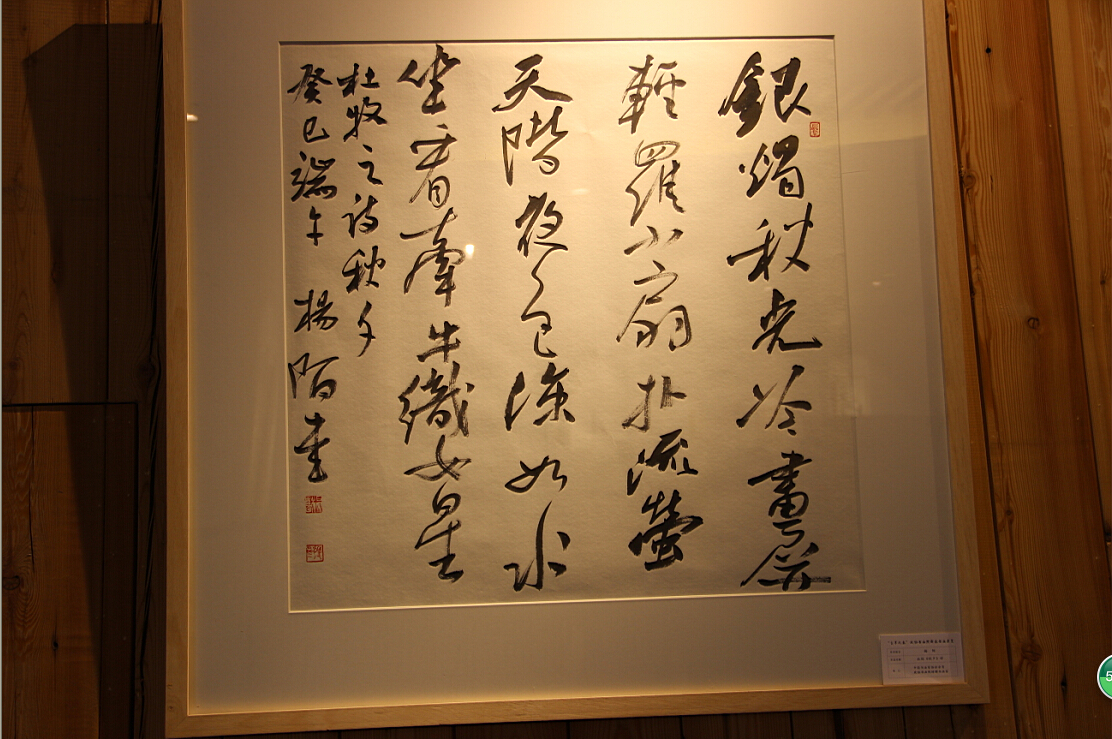 銀燭秋光冷畫屏
輕羅小扇扑流螢
天階夜色涼如水
坐看牽牛織女星
杜牧之詩秋夕
癸巳端午 楊陌書